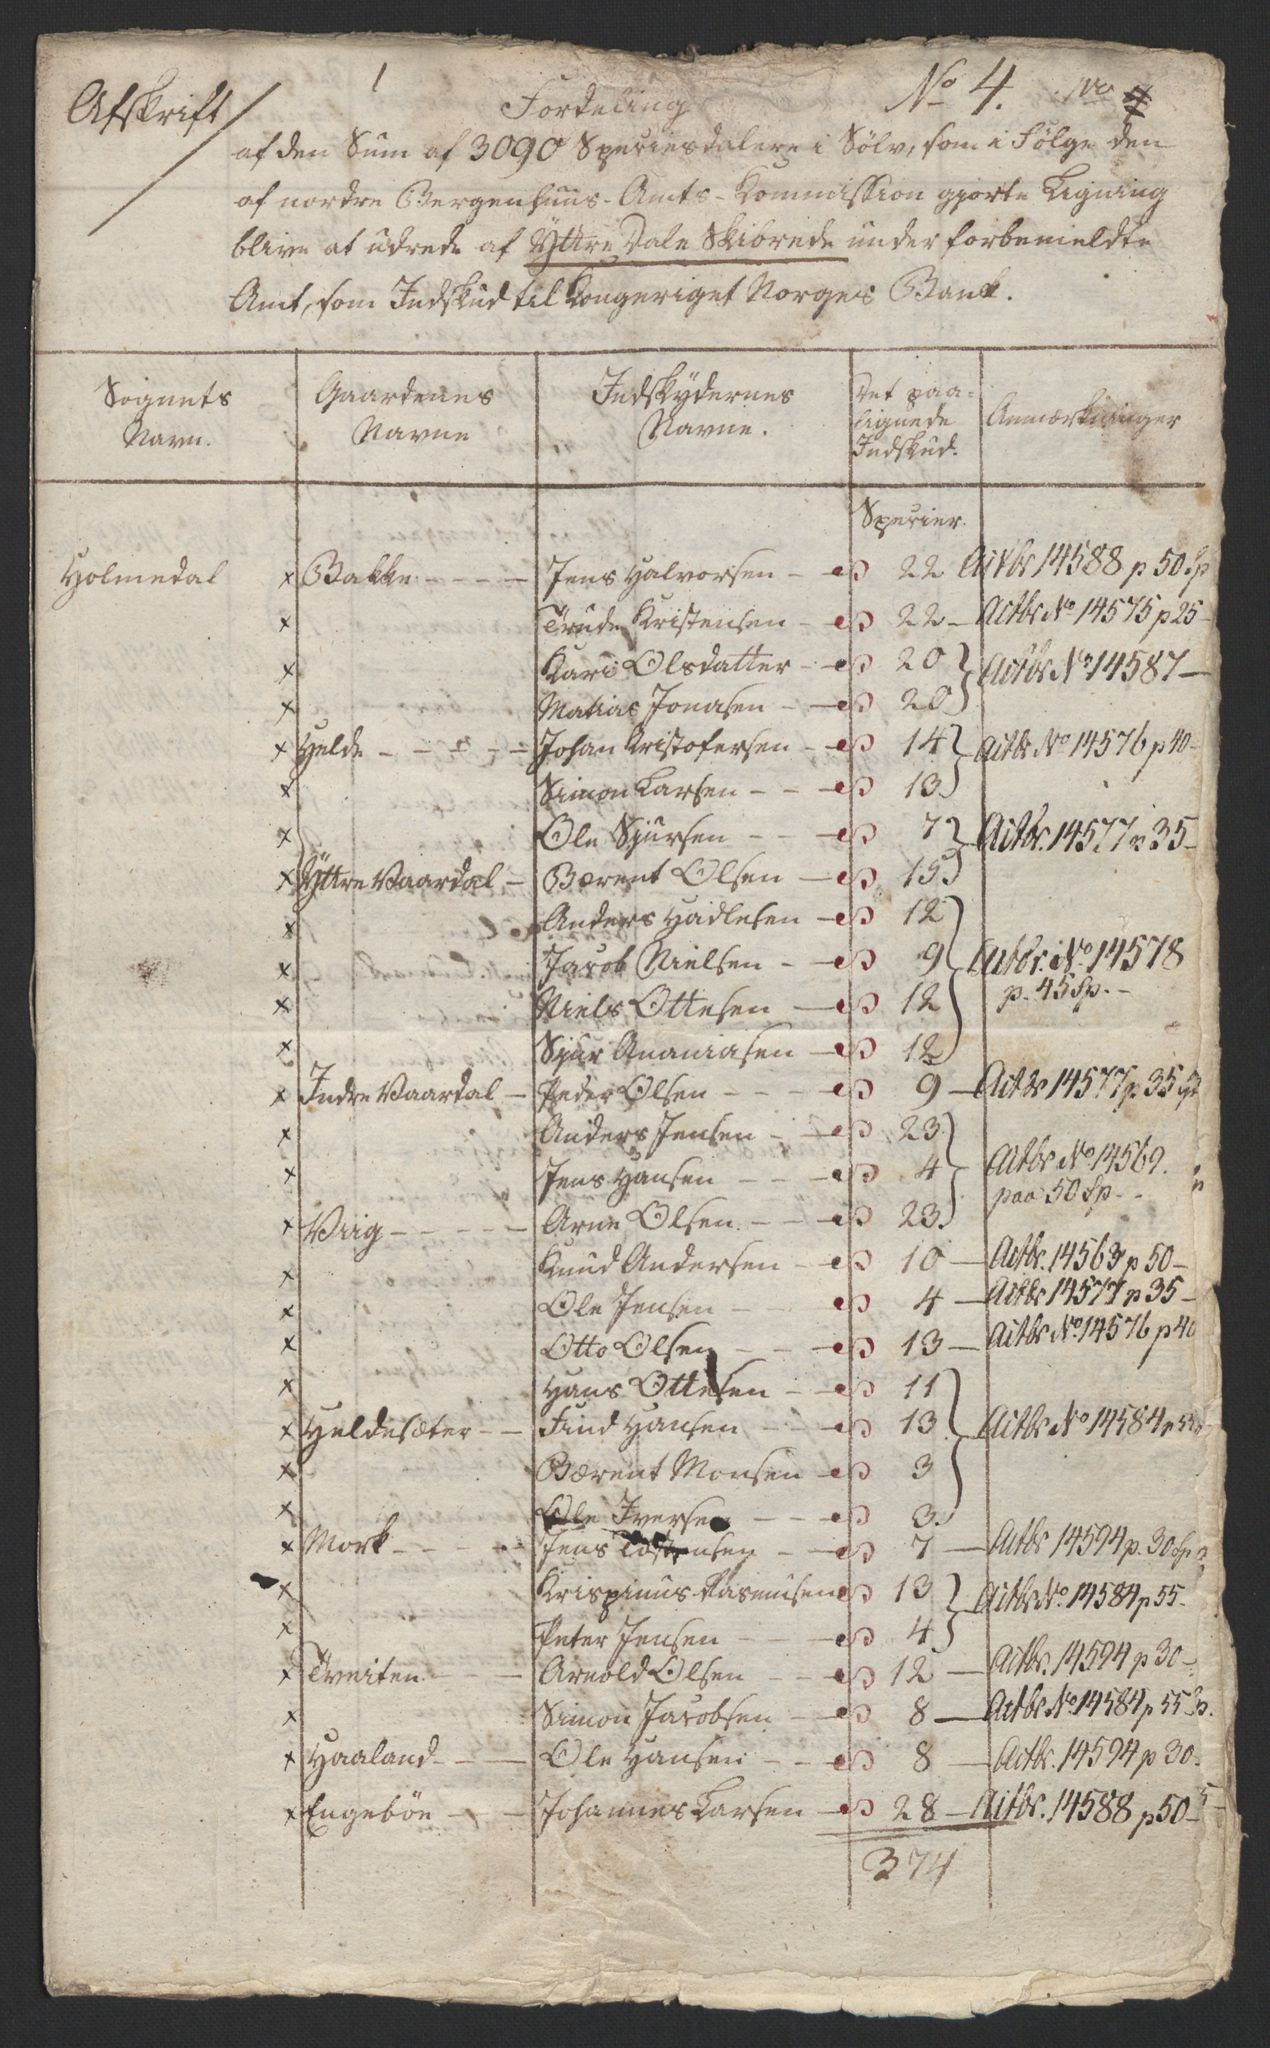 Afskrift
1
No 4.
Fordeling
af den Sum af 3090 Speciesdalere i Sølv, som i Følge den
af nordre Bergenhuus-Amts-Kommission gjorte Ligning
blive at udrede af Yttre Dale Skibrede under forbemeldte
Amt, som Indskud til Kongeriget Norges Bank.
Sognets Navn. Gaardenes Navne Indskydernes Navne. Det paa-lignede Indskud. Anmærkninger
Specier.
Holmedal x Bakke - - - - Jens Halvorsen - 22 Actbr 14588 p 50 Sp
x Trude Kristensen - 22 - Actbr No 14575 p 25 -
x Kari Olsdatter - 20 } Actbr No 14587 -
x Matias Jonasen - - 20
x Helde - - - - - Johan Kristofersen - 14 } Actbr No 14576 p 40 -
x Simon Larsen - - - 13
x Ole Sjursen - - - 7 } Actbr. 14577 p 35 -
x Yttre Vaardal - Bærent Olsen - 15
x Anders Hadlesen - 12 }
x Jacob Nielsen - - 9 Actbr. No 14578
x Niels Ottesen - - 12 p. 45 Sp. -
x Sjur Ananiasen - 12
x Indre Vaardal - Peder Olsen - - - 9 - Actbr 14577 p. 35 Sp
x Anders Jensen - - 23 }
x Jens Hansen - - - 4 Actbr No 14569.
paa 50 Sp. -
x Viig - - - - - Arne Olsen - - - 23
x Knud Andersen - - 10 - Actbr. 14563 p 50 -
x Ole Jensen - - - 4 - Actbr 14577 p 35 -
x Otto Olsen - - - 13 - Actbr No. 14576 p 40
x Hans Ottesen - - 11 }
x Heldesæter - - Find Hansen - - - 13 Actbr No 14584 p 55
x Bærent Monsen - 3
x Ole Iversen - - - 3.
x Mork - - - - - Jens Tostensen - - 7 - Actbr 14594 p. 30 Sp
x Krispinus Rasmusen 13 } Actbr No. 14584 p 55.
x Peter Jensen - - - 4
x Tveiten - - - Arnold Olsen - - - 12 - Actbr. 14594 p 30 -
x Simon Jacobsen - 8 - Actbr No 14584 p 55
x Haaland - - - Ole Hansen - - 8 - Actbr. 14594 p 30.
x Engebøe - - - Johannes Larsen - 28 - Actbr. 14588 p 50 -
374